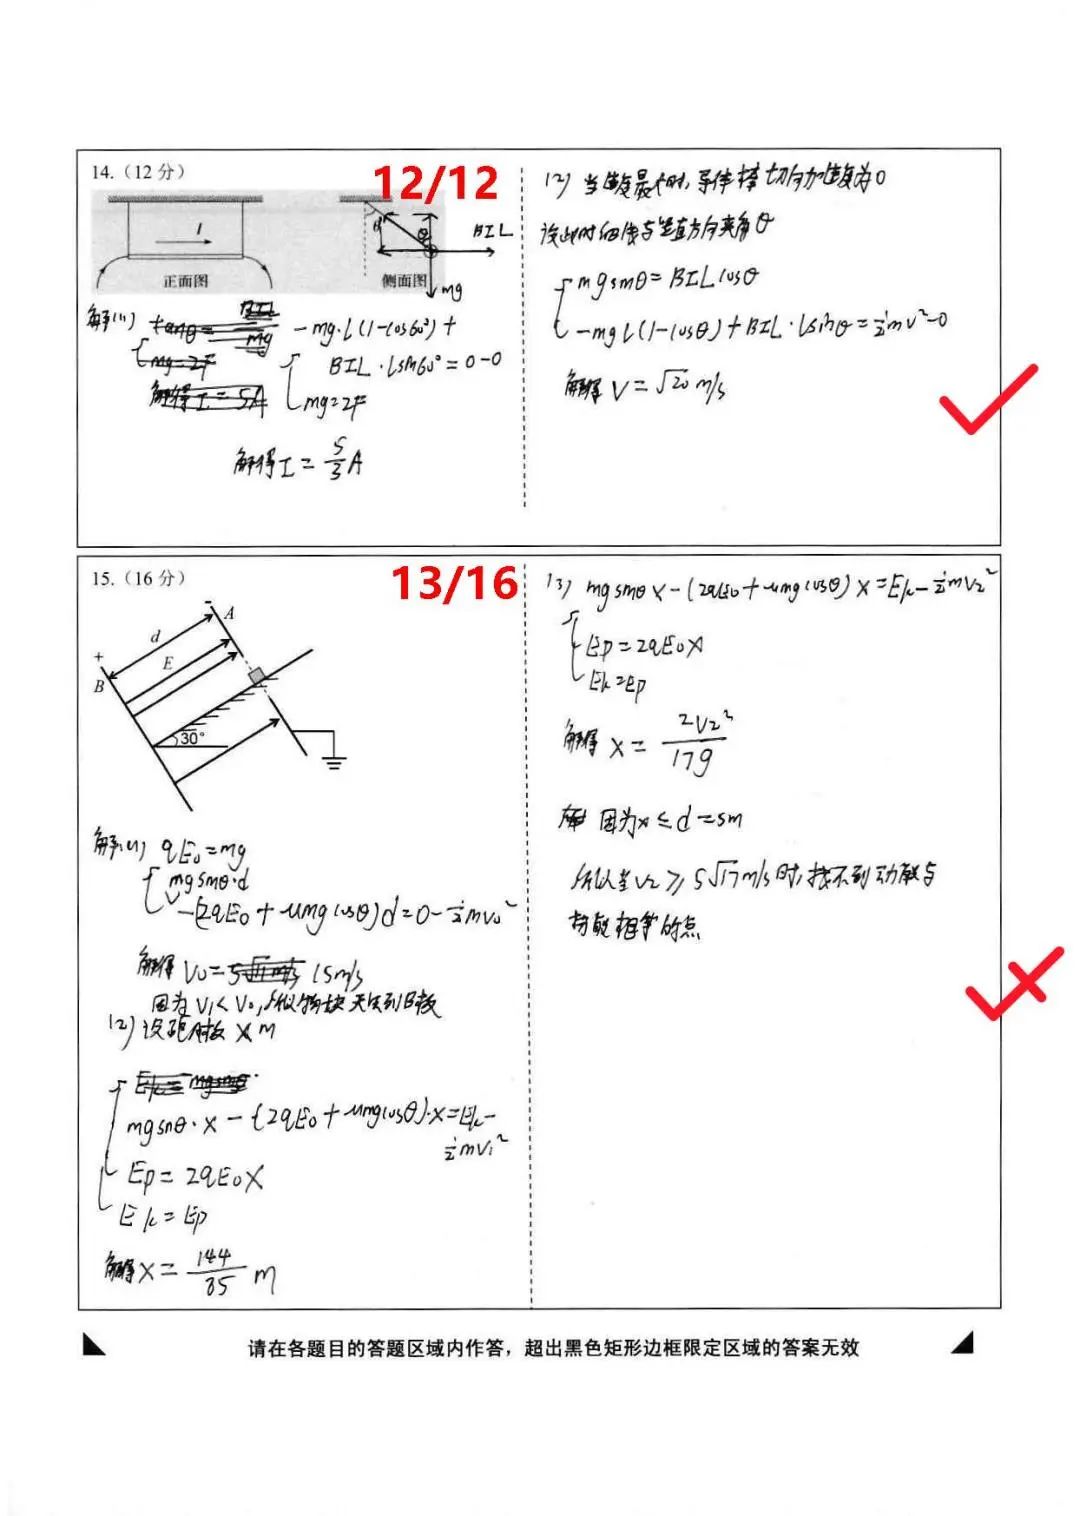 14.（12 分）
12/12
I
正面图
θ
θ
BIL
侧面图
mg
解(1)
-mg·L(1-cos60°)+
BIL·Lsin60°=0-0
mg=2F
解得I=5/3A
(2) 当速度最大时，导体棒切向加速度为0
设此时细线与竖直方向夹角θ
mgsinθ=BILcosθ
-mgL(1-cosθ)+BIL·Lsinθ=½mv²-0
解得 V=√20 m/s
15.（16 分）
13/16
A
d
+
E
B
30°
解(1) qE₀=mg
mgsinθ·d
-(2qE₀+μmgcosθ)d=0-½mv₀²
解得 V₀= 15m/s
因为V₁<V₀,所以物块无法到B板
(2) 设距A板 x m
mgsinθ·x-(2qE₀+μmgcosθ)·x=Ek-
½mv₁²
Ep=2qE₀x
Ek=Ep
解得x=144/85 m
(3) mgsinθx-(2qE₀+μmgcosθ)x=Ek-½mv₂²
Ep=2qE₀x
Ek=Ep
解得 x=2v₂²/17g
因为x≤d=5m
所以当V₂≥5√17m/s时,找不到动能与
势能相等的点
请在各题目的答题区域内作答，超出黑色矩形边框限定区域的答案无效